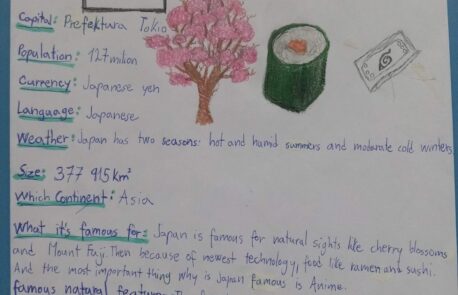 Capital: Prefektura Tokio
Population: 127 milion
Currency: Japanese yen
Language: Japanese
Weather: Japan has two seasons: hot and humid summers and moderate cold winters.
Size: 377 915 km²
Which Continent: Asia
What it's famous for: Japan is famous for natural sights like cherry blossoms
and Mount Fuji. Then because of newest technology, food like ramen and sushi.
And the most important thing why is Japan famous is Anime.
famous natural